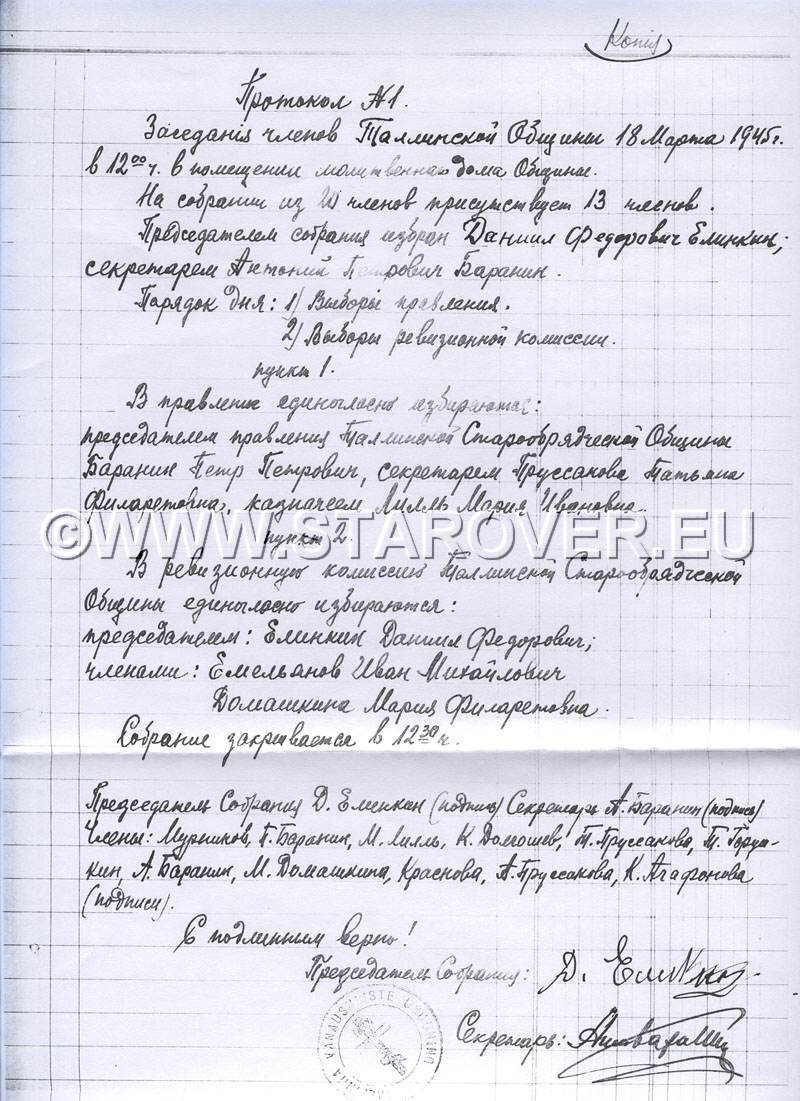 Копия
Протокол №1.
Заседания членов Таллинской Общины 18 Марта 1945г.
в 12⁰⁰ч. в помещении молитвеннаг дома Общины.
На собрании из 20 членов присутствует 13 членов.
Председателем собрания избран Даниил Федорович Елинкин;
секретарем Антоний Петрович Баранин.
Порядок дня: 1) Выборы правления.
2) Выборы ревизионной комиссии.
пункт 1.
В правление единогласно избираются:
председателем правления Таллинской Старообрядческой Общины
Баранин Петр Петрович, секретарем Пруссакова Татьяна
Филаретовна, казначеем Лилль Мария Ивановна.
©WWW.STAROVER.EU
пункт 2.
В ревизионную комиссию Таллинской Старообрядческой
Общины единогласно избираются:
председателем: Елинкин Даниил Федорович;
членами: Емельянов Иван Михайлович
Домашкина Мария Филаретовна.
Собрание закрывается в 12³⁰ч.
Председатель Собрания Д. Елинкин (подпись) Секретарь А. Баранин (подпись)
Члены: Мурников, П. Баранин, М. Лилль, К. Долгошев, Т. Пруссакова, Т. Горуш-
кин, А. Баранин, М. Домашкина, Краснова, А. Пруссакова, К. Агафонова
(подписи).
С подлинным верно!
Председатель Собрания: Д. Елинкин
Секретарь:
VANAUSULISTE USUÜHING